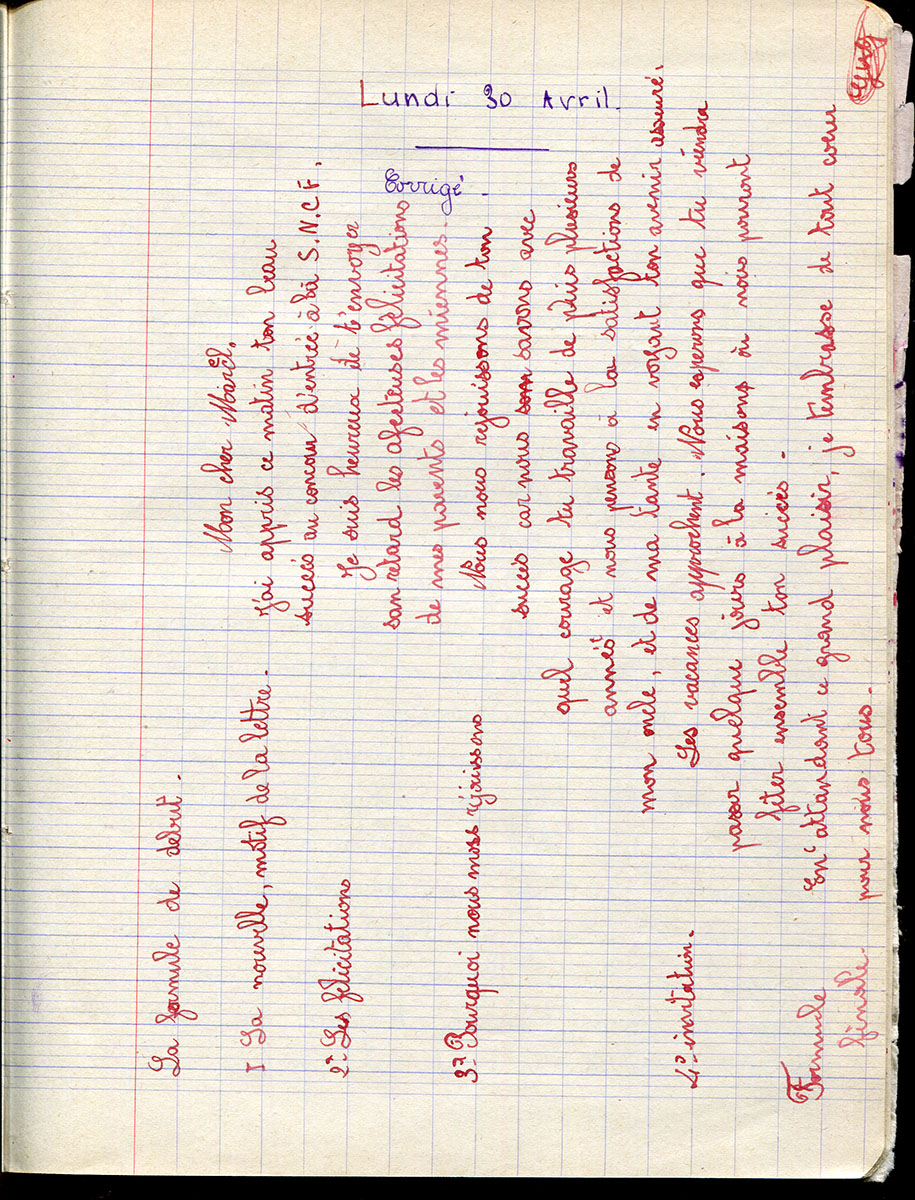 Lundi 30 Avril.
Corrigé.
La formule de debut.
Mon cher Marcel,
I La nouvelle, motif de la lettre.
J'ai appris ce matin ton beau
succès au concour d'entrée à la S.N.C.F.
2° Les félicitations
Je suis heureux de t'envoyer
san retard les afectueuses félicitations
de mes parents et les miennes.
3° Pourquoi nous nous réjouissons
Nous nous rejouissons de ton
succès car nous savons avec
quel courage tu travaille de puis plusieurs
années et nous pensons à la satisfactions de
mon oncle, et de ma tante en voyant ton avenir assuré.
4° invitation.
Les vacances approchent. Nous esperons que tu viendra
passer quelque jours à la maisons où nous pouront
fêter ensemble ton succès.
Formule
finale.
En attandant ce grand plaisir, je t'embrasse de tout coeur
pour nous tous.